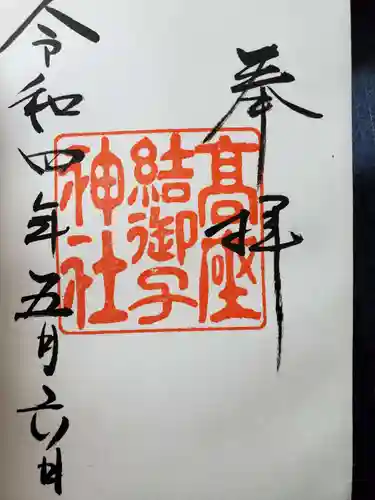 奉拝
髙座
結御子
神社
令和四年五月六日